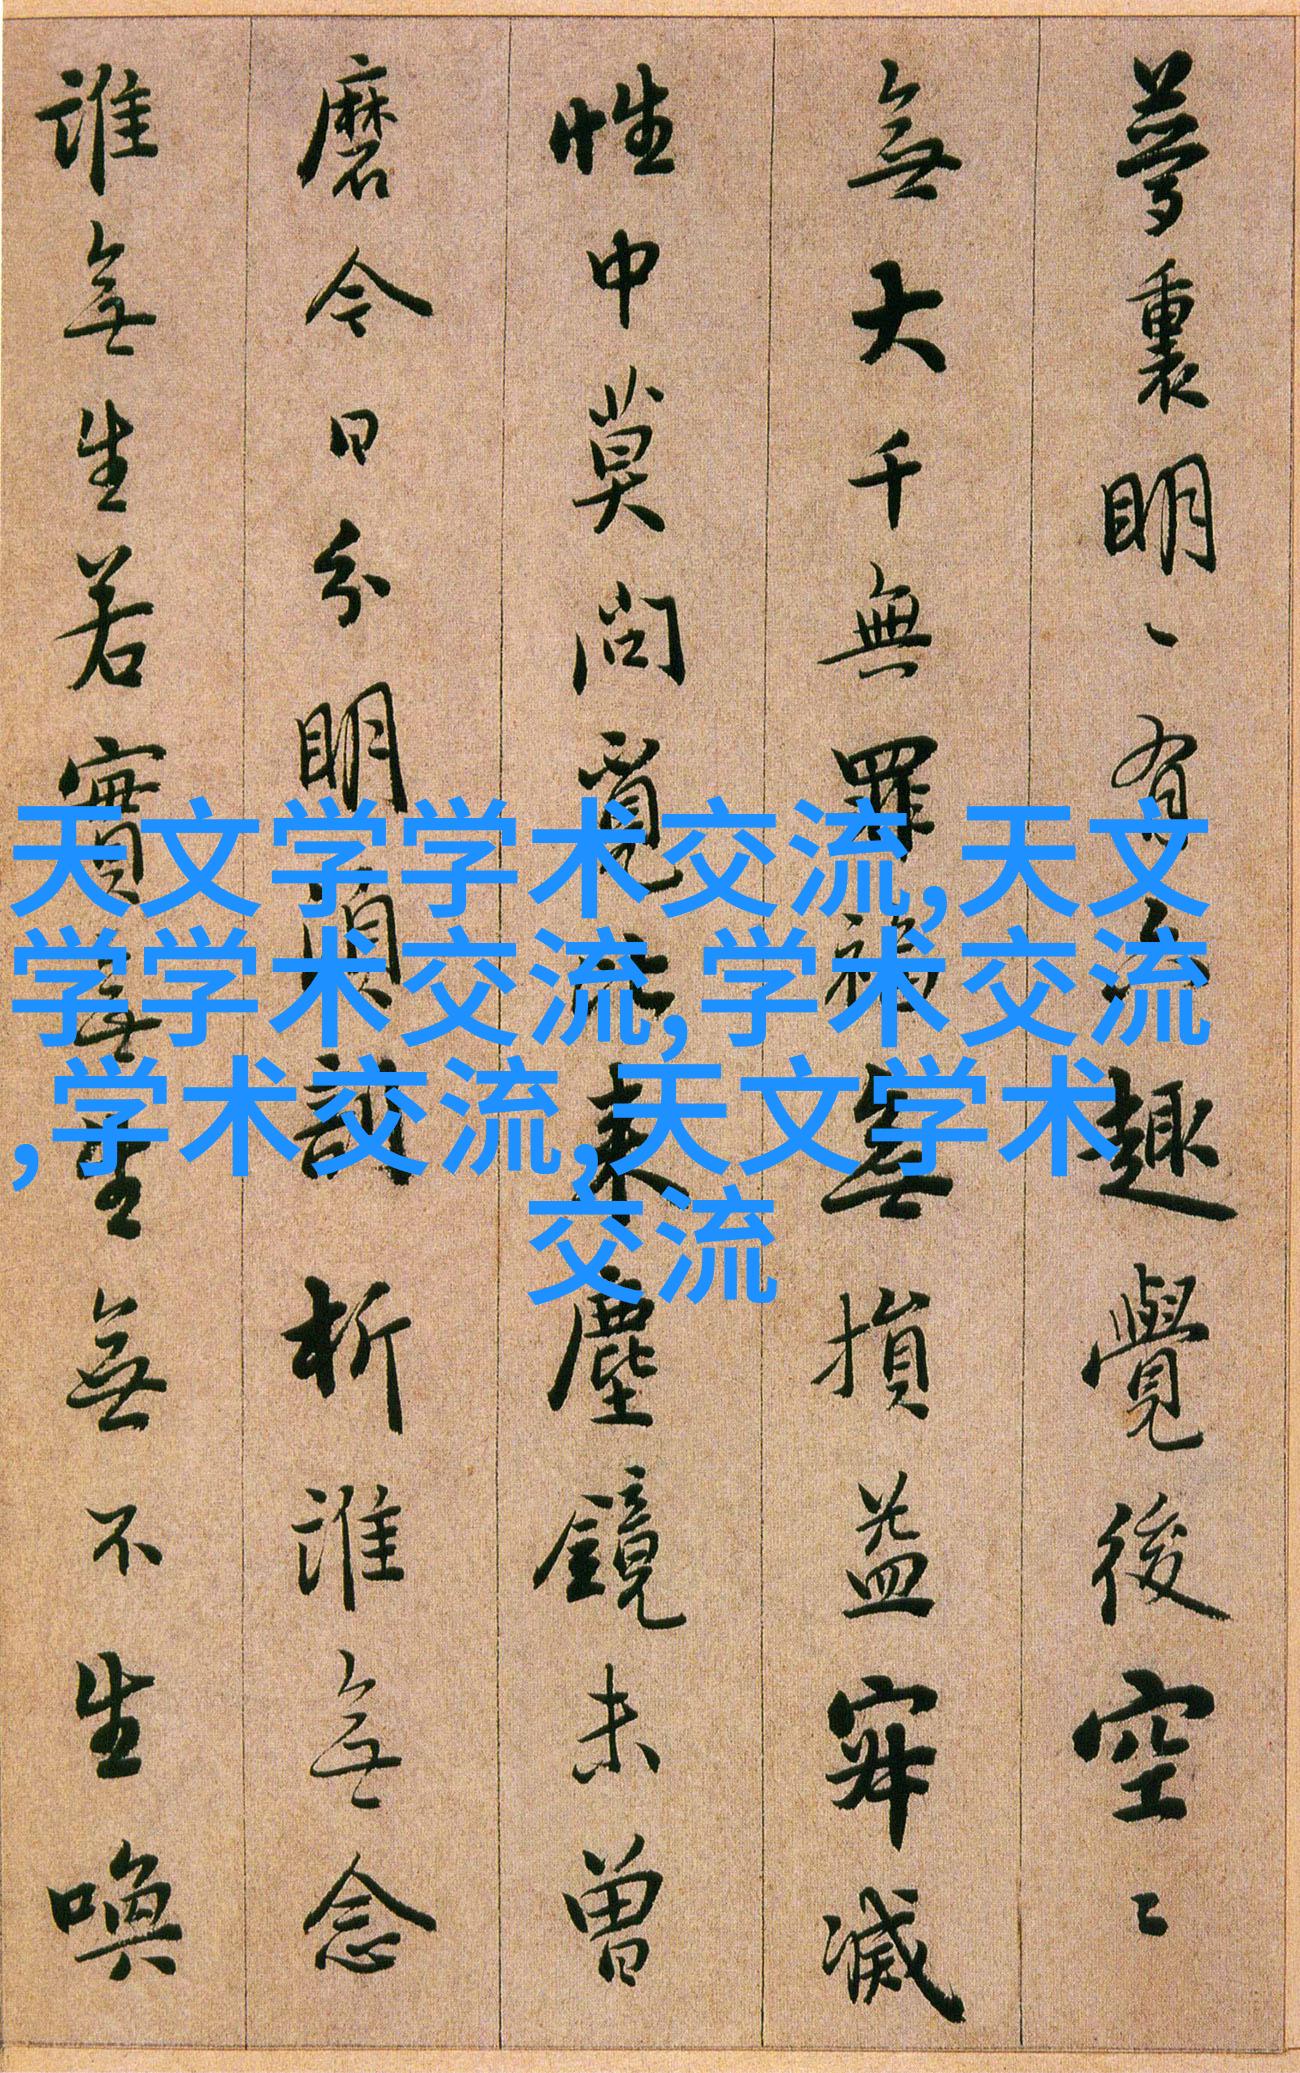 夢裏明丶有六趣覺後空〻
無大千無罪福無損益寂滅
性中莫問覓比來塵鏡未曾
磨今日分明須剖析誰無念
誰無生若實無生無不生喚
天文学学术交流,天文
学学术交流,学术交流
,学术交流,天文学术
交流